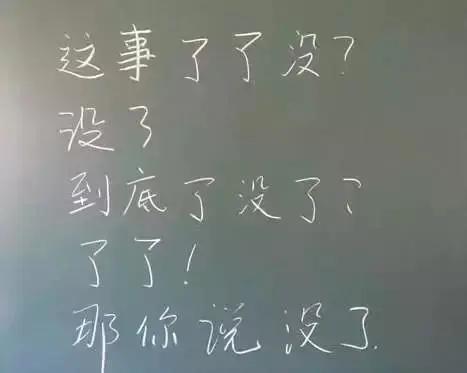 这事了了没?
没了
到底了没了?
了了!
那你说没了.